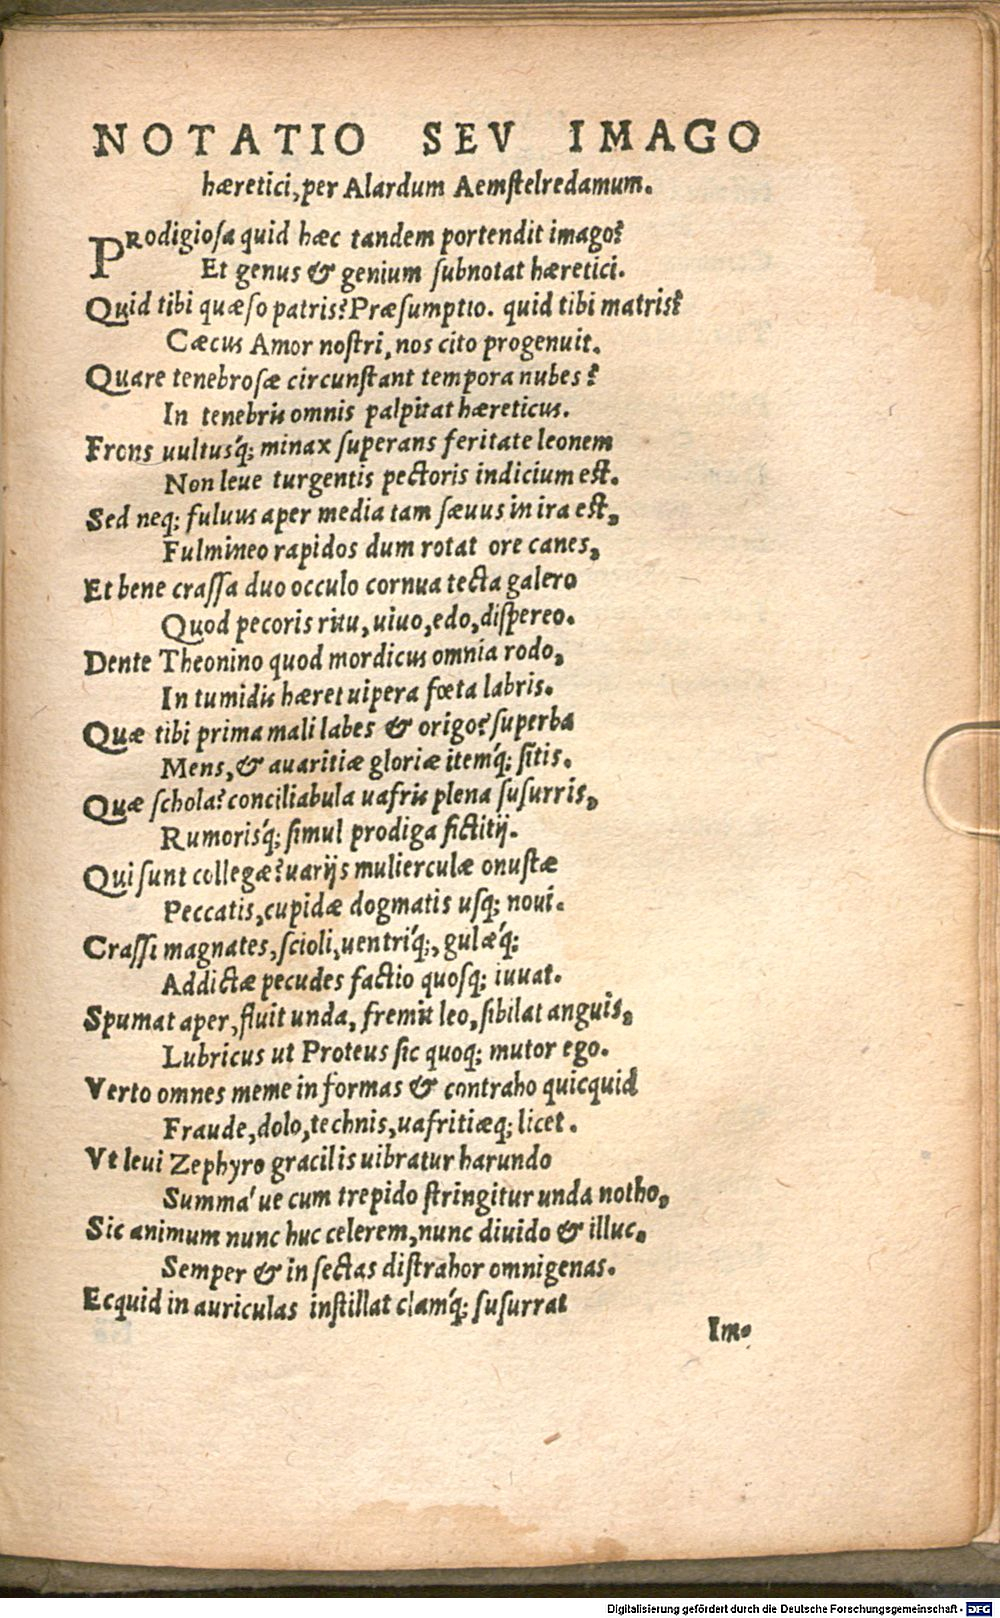 NOTATIO SEV IMAGO
hæretici, per Alardum Aemstelredamum.
PRodigiosa quid hæc tandem portendit imago?
Et genus & genium subnotat hæretici.
Quid tibi quæso patris? Præsumptio. quid tibi matris?
Cæcus Amor nostri, nos cito progenuit.
Quare tenebrosæ circunstant tempora nubes?
In tenebris omnis palpitat hæreticus.
Frons uultusq́; minax superans feritate leonem
Non leue turgentis pectoris indicium est.
Sed neq; fuluus aper media tam sæuus in ira est,
Fulmineo rapidos dum rotat ore canes,
Et bene crassa duo occulo cornua tecta galero
Quod pecoris ritu, uiuo, edo, dispereo.
Dente Theonino quod mordicus omnia rodo,
In tumidis hæret uipera fœta labris.
Quæ tibi prima mali labes & origo? superba
Mens, & auaritiæ gloriæ itemq́; sitis.
Quæ schola? conciliabula uafris plena susurris,
Rumorisq́; simul prodiga fictitij.
Qui sunt collegæ? uarijs mulierculæ onustæ
Peccatis, cupidæ dogmatis usq; noui.
Crassi magnates, scioli, uentriq́;, gulæq́;
Addictæ pecudes factio quosq; iuuat.
Spumat aper, fluit unda, fremit leo, sibilat anguis,
Lubricus ut Proteus sic quoq; mutor ego.
Verto omnes meme in formas & contraho quicquid
Fraude, dolo, technis, uafritiæq; licet.
Vt leui Zephyro gracilis uibratur harundo
Summa' ue cum trepido stringitur unda notho,
Sic animum nunc huc celerem, nunc diuido & illuc,
Semper & in sectas distrahor omnigenas.
Ecquid in auriculas instillat clamq́; susurrat
Im-
Digitalisierung gefördert durch die Deutsche Forschungsgemeinschaft - DFG